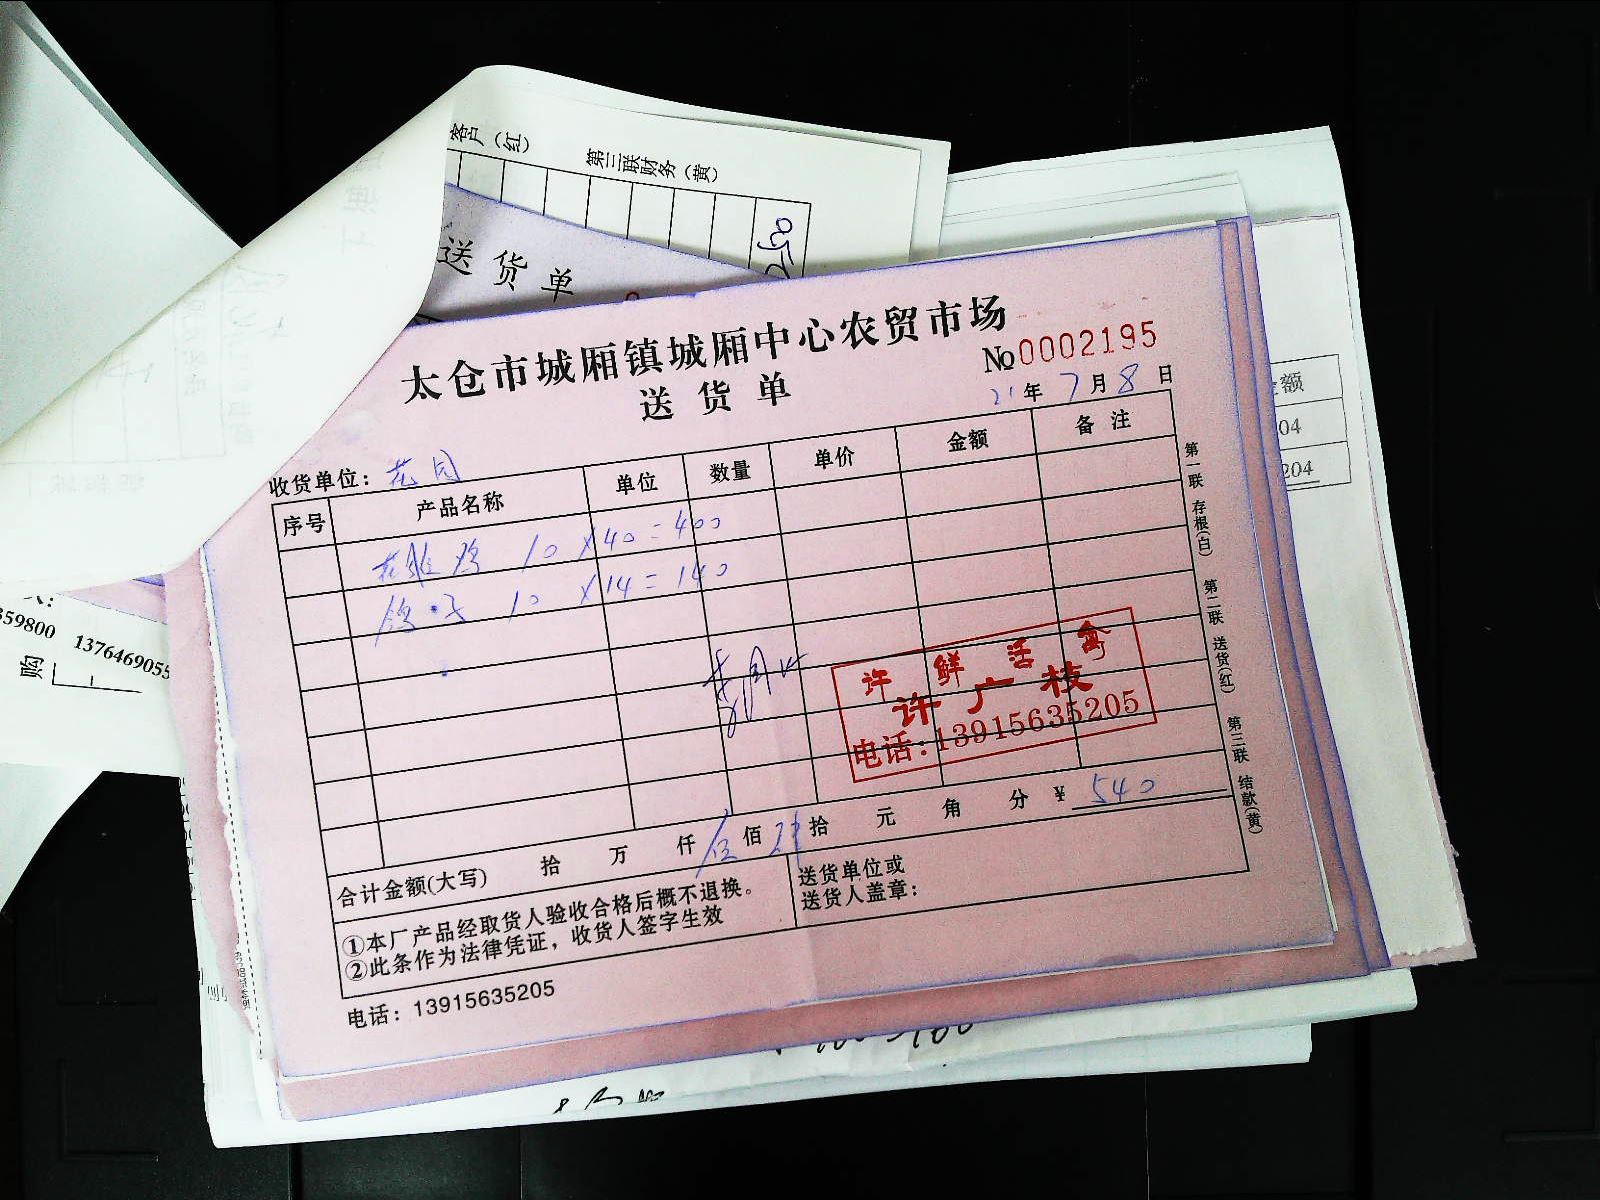 客户（红）
第三联财务（黄）
送货单
太仓市城厢镇城厢中心农贸市场
送货单
No 0002195
21年7月8日
收货单位：花园
序号 产品名称 单位 数量 单价 金额 备注
鸡 10 ×40=400
鸽子 10 ×14=140
许鲜活禽
许广枝
电话:13915635205
合计金额(大写) 拾 万 仟 伍佰 肆拾 元 角 分 ¥ 540
①本厂产品经取货人验收合格后概不退换。
②此条作为法律凭证，收货人签字生效
送货单位或
送货人盖章：
电话：13915635205
第一联 存根(白) 第二联 送货(红) 第三联 结款(黄)
额
04
204
359800 1376469055
购